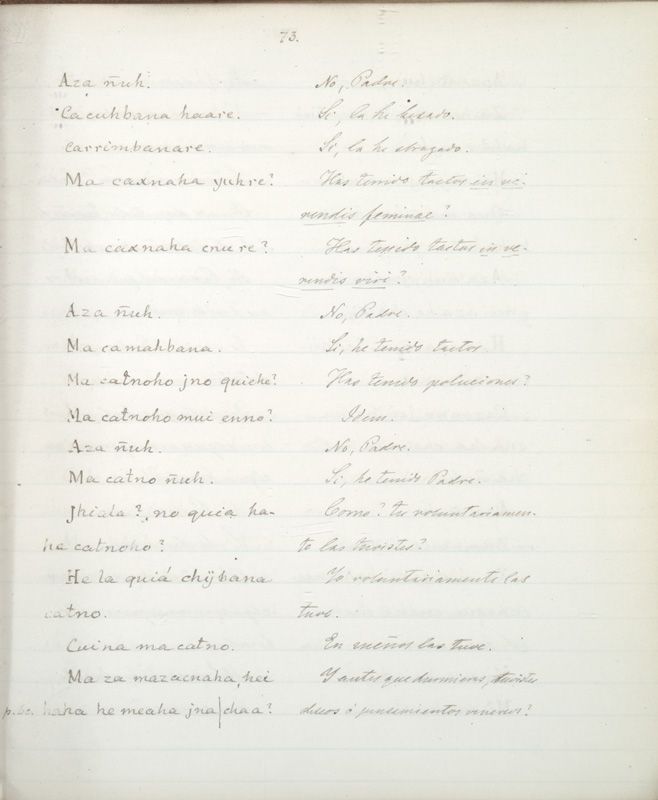 73.
Aza ñuh. No, Padre.
Cacuhbana haare. Si, la he besado.
Carrimbanare. Si, la he abrazado.
Ma caxnaha yuhre? Has tenido tactos in ve-
rendis feminae?
Ma caxnaha cnure? Has tenido tactos in ve-
rendis viri?
Aza ñuh. No, Padre.
Ma camahbana. Si, he tenido tactos
Ma catnoho jno quiche? Has tenido poluciones?
Ma catnoho mui enno? Idem.
Aza ñuh. No, Padre.
Ma catno ñuh. Si, he tenido Padre.
Jhiala? no quia ha- Como? tu voluntariamen-
ha catnoho? te las tuviste?
He la quiá chijbana Yo voluntariamente las
catno. tuve.
Cuina ma catno. En sueños las tuve.
Ma za mazacnaha, hei Y antes que durmieras, tuviste
haha he meaha jna chaa? deseos ó pensamientos venereos?